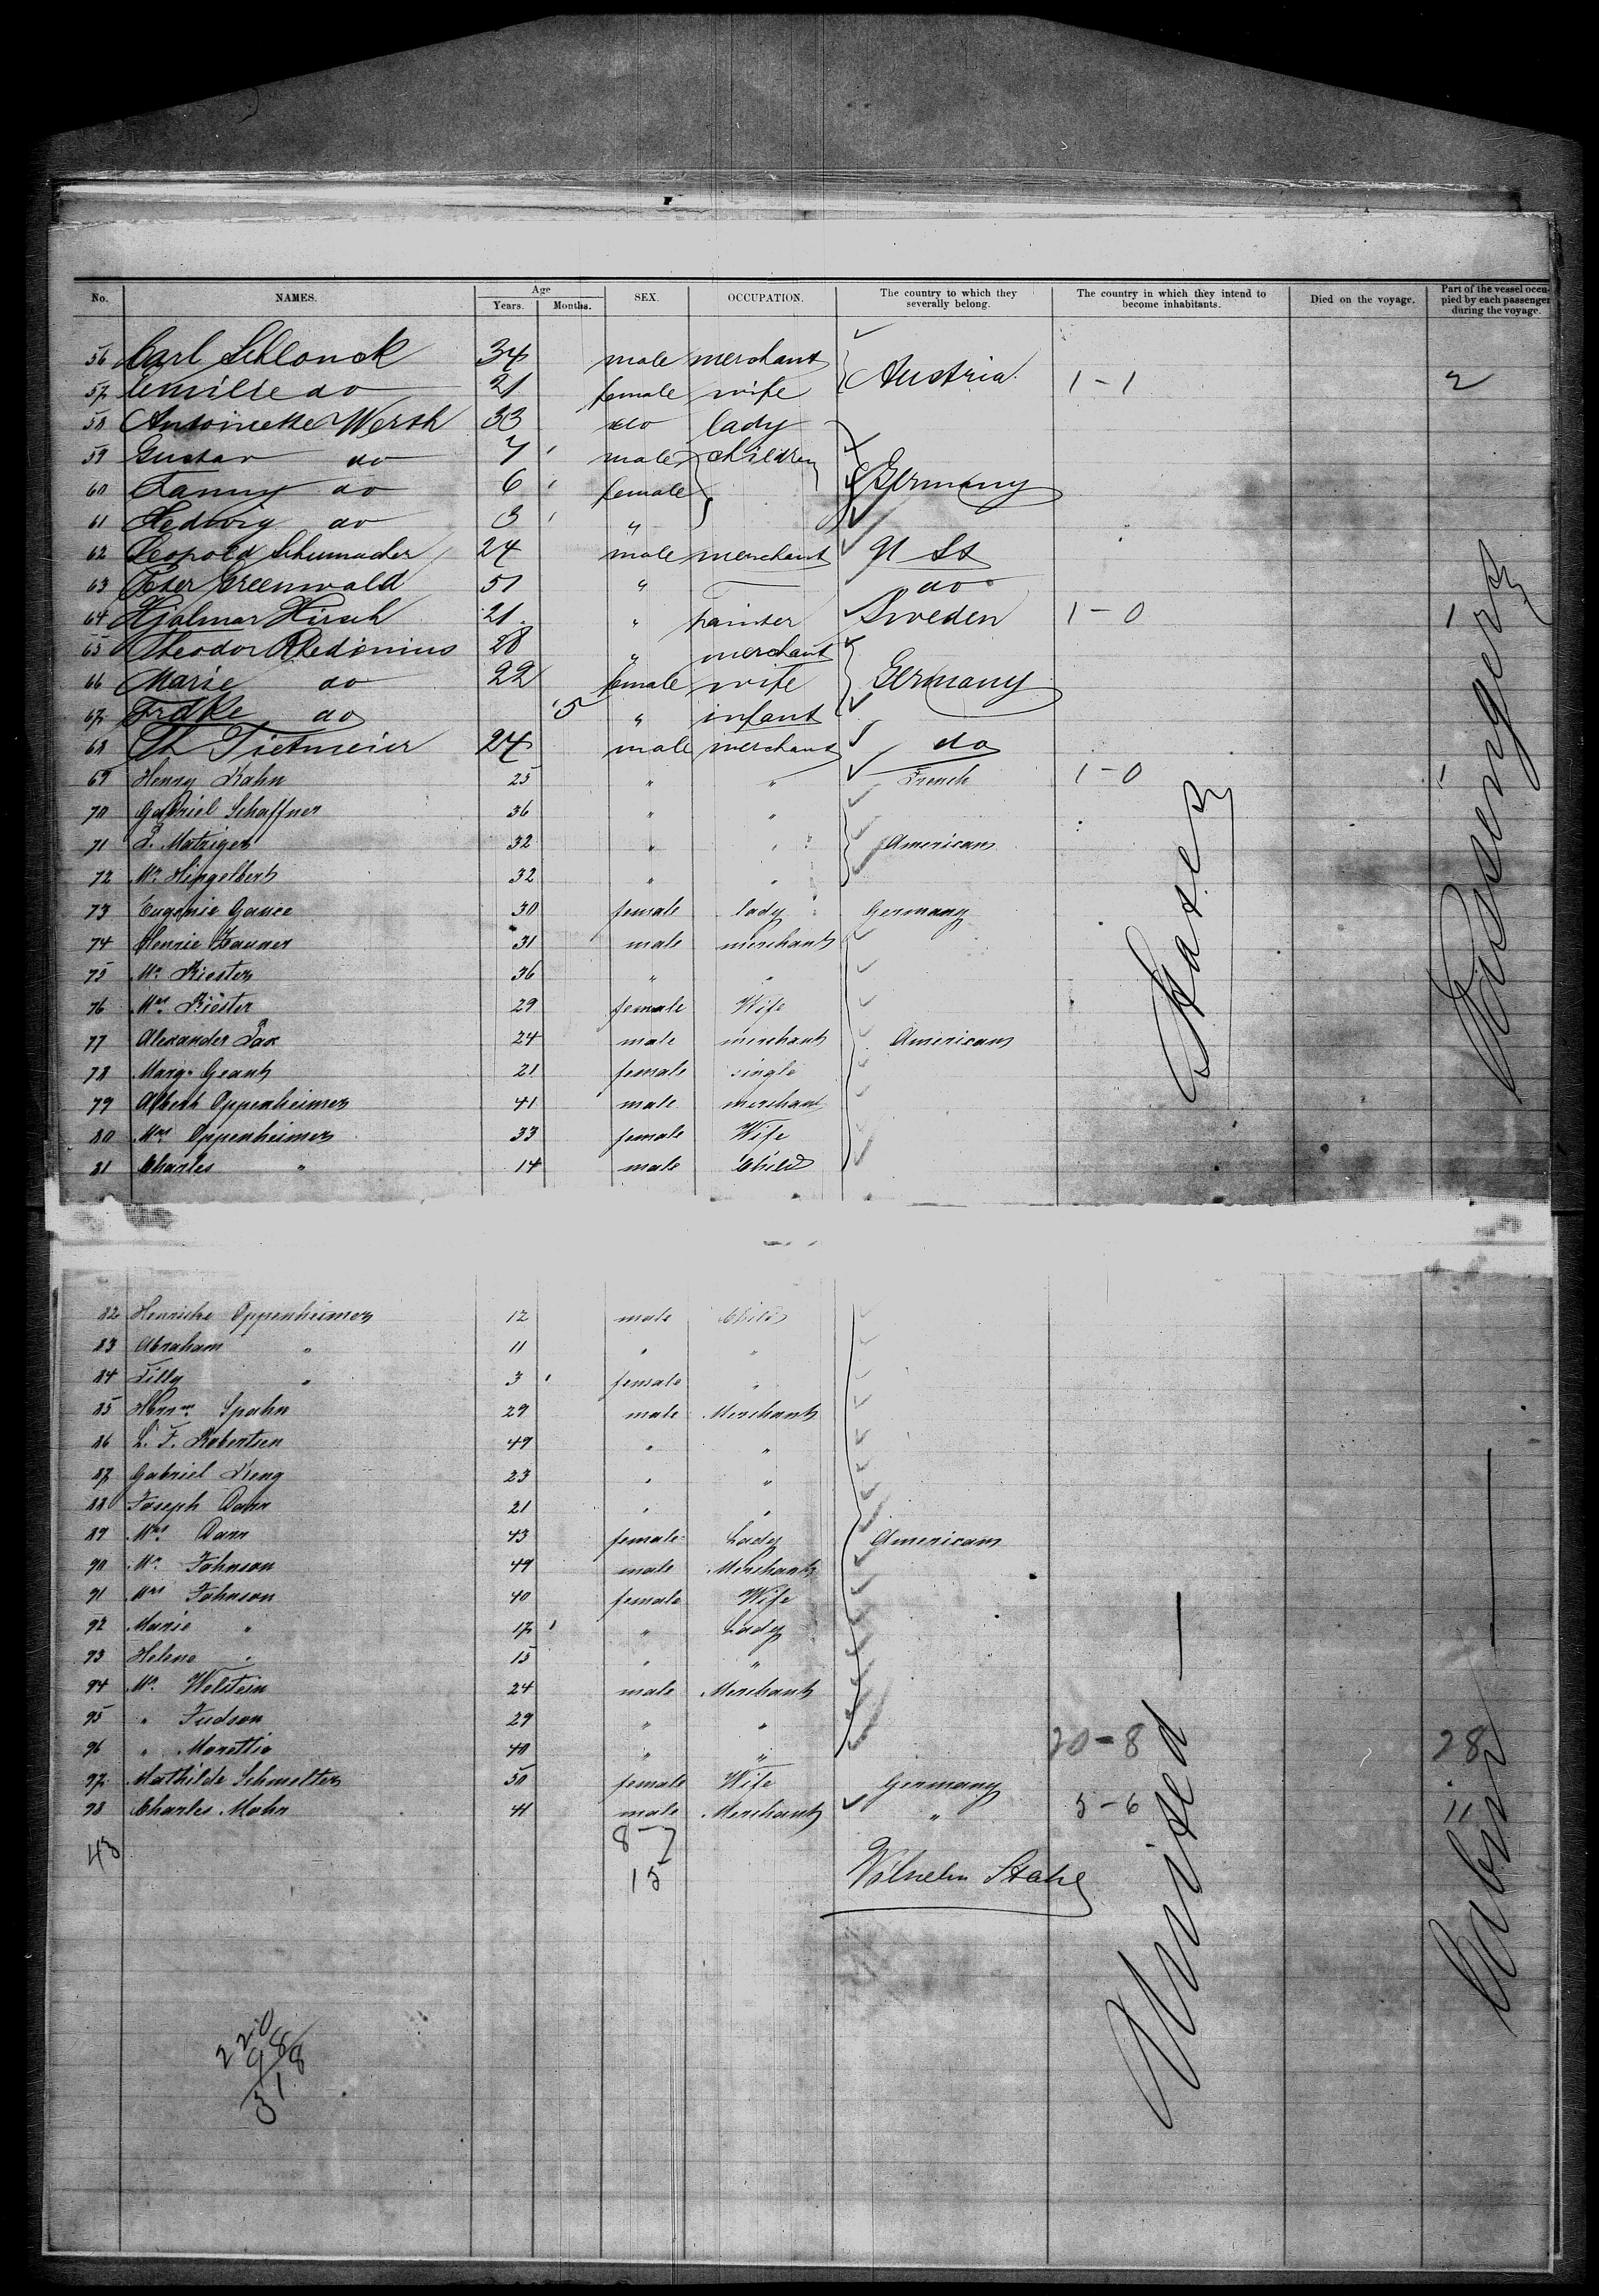 No. NAMES. Age Years. Months. SEX. OCCUPATION. The country to which they severally belong. The country in which they intend to become inhabitants. Died on the voyage. Part of the vessel occupied by each passenger during the voyage.
56 Carl Schlonck 34 male merchant
Austria 1-1 2
57 Emilie do 21 female wife
58 Antoinette Wersh 33 do lady
59 Gustav do 7 male children
60 Fanny do 6 female Germany
61 Hedwig do 3 "
62 Leopold Schumacher 24 male merchant U St
63 Peter Greenwald 51 " do
64 Hjalmar Hirsch 21 " painter Sweden 1-0 1
65 Theodor Rhedinius 28 " merchant
66 Marie do 22 female wife Germany
67 Frdke do 5 " infant
68 Th Tietmeier 24 male merchant do
69 Henry Kahn 25 " " French 1-0 1
70 Gabriel Schaffner 36 " "
71 P. Matziger 32 " " Americans
72 Mr. Hingelbert 32 " "
73 Eugenie Gauce 30 female lady Germany
74 Hennie Zauner 31 male merchant
75 Mr. Kiester 36 " "
76 Mrs. Kiester 29 female Wife
77 Alexander Pax 24 male merchant Americans
78 Marg. Geantz 21 female single
79 Albert Oppenheimer 41 male merchant
80 Mrs Oppenheimer 33 female Wife
81 Charles " 14 male Child
82 Henricke Oppenheimer 12 male Child
83 Abraham " 11 " "
84 Tilly " 3 female "
85 Herm. Spahn 29 male Merchant
86 L. F. Robertsen 49 " "
87 Gabriel Kreng 23 " "
88 Joseph Dann 21 " "
89 Mrs Dann 43 female Lady Americans
90 Mr. Johnson 49 male Merchant
91 Mrs Johnson 40 female Wife
92 Marie " 17 " Lady
93 Helene " 15 " "
94 Mr. Welstein 24 male Merchant
95 " Judson 29 " "
96 " Morettie 40 " " 20-8 28
97 Mathilde Schmelter 50 female Wife Germany
98 Charles Mohr 41 male Merchant " 5-6 11
43 8-7
15
Wilhelm Stahl
United States
Cabin Passengers
220
98
318